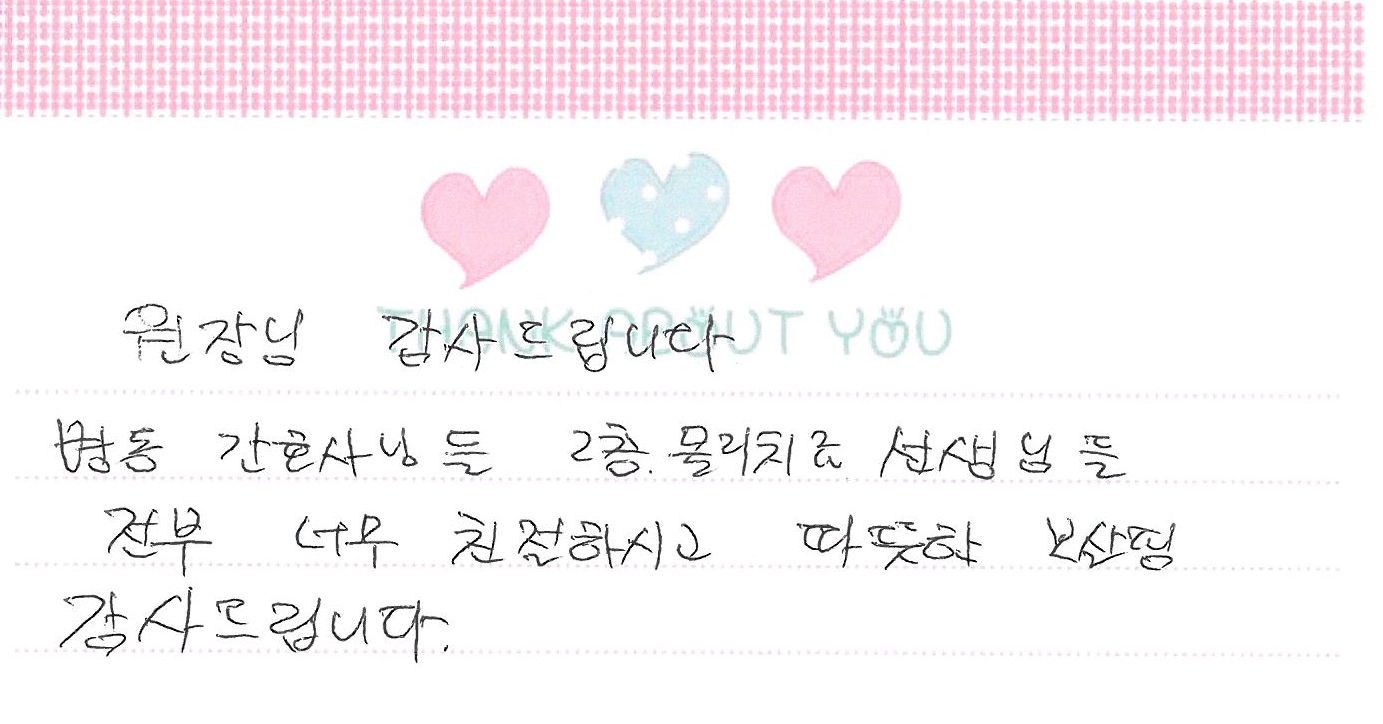 THANK ABOUT YOU
원장님 감사드립니다
병동 간호사님들 2층.물리치료 선생님들
전부 너무 친절하시고 따뜻한 보살핌
감사드립니다.